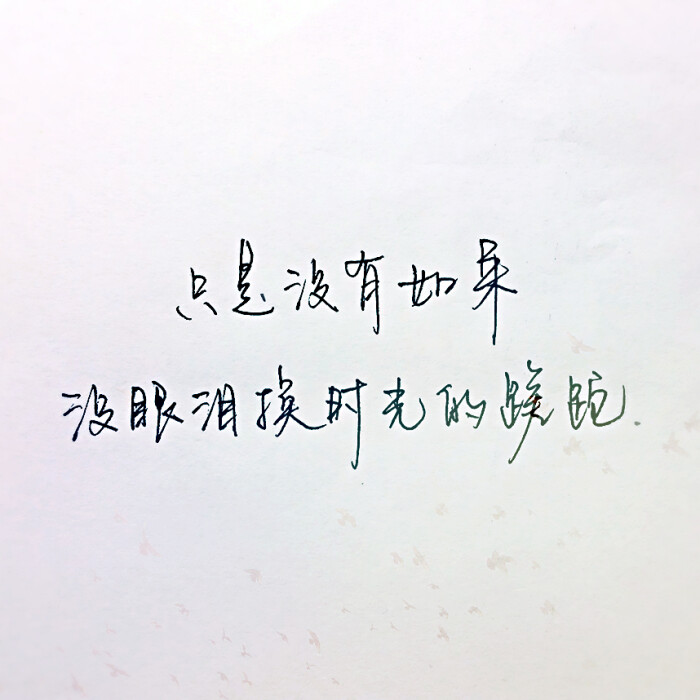 只是没有如果
没眼泪换时光的蹉跎.